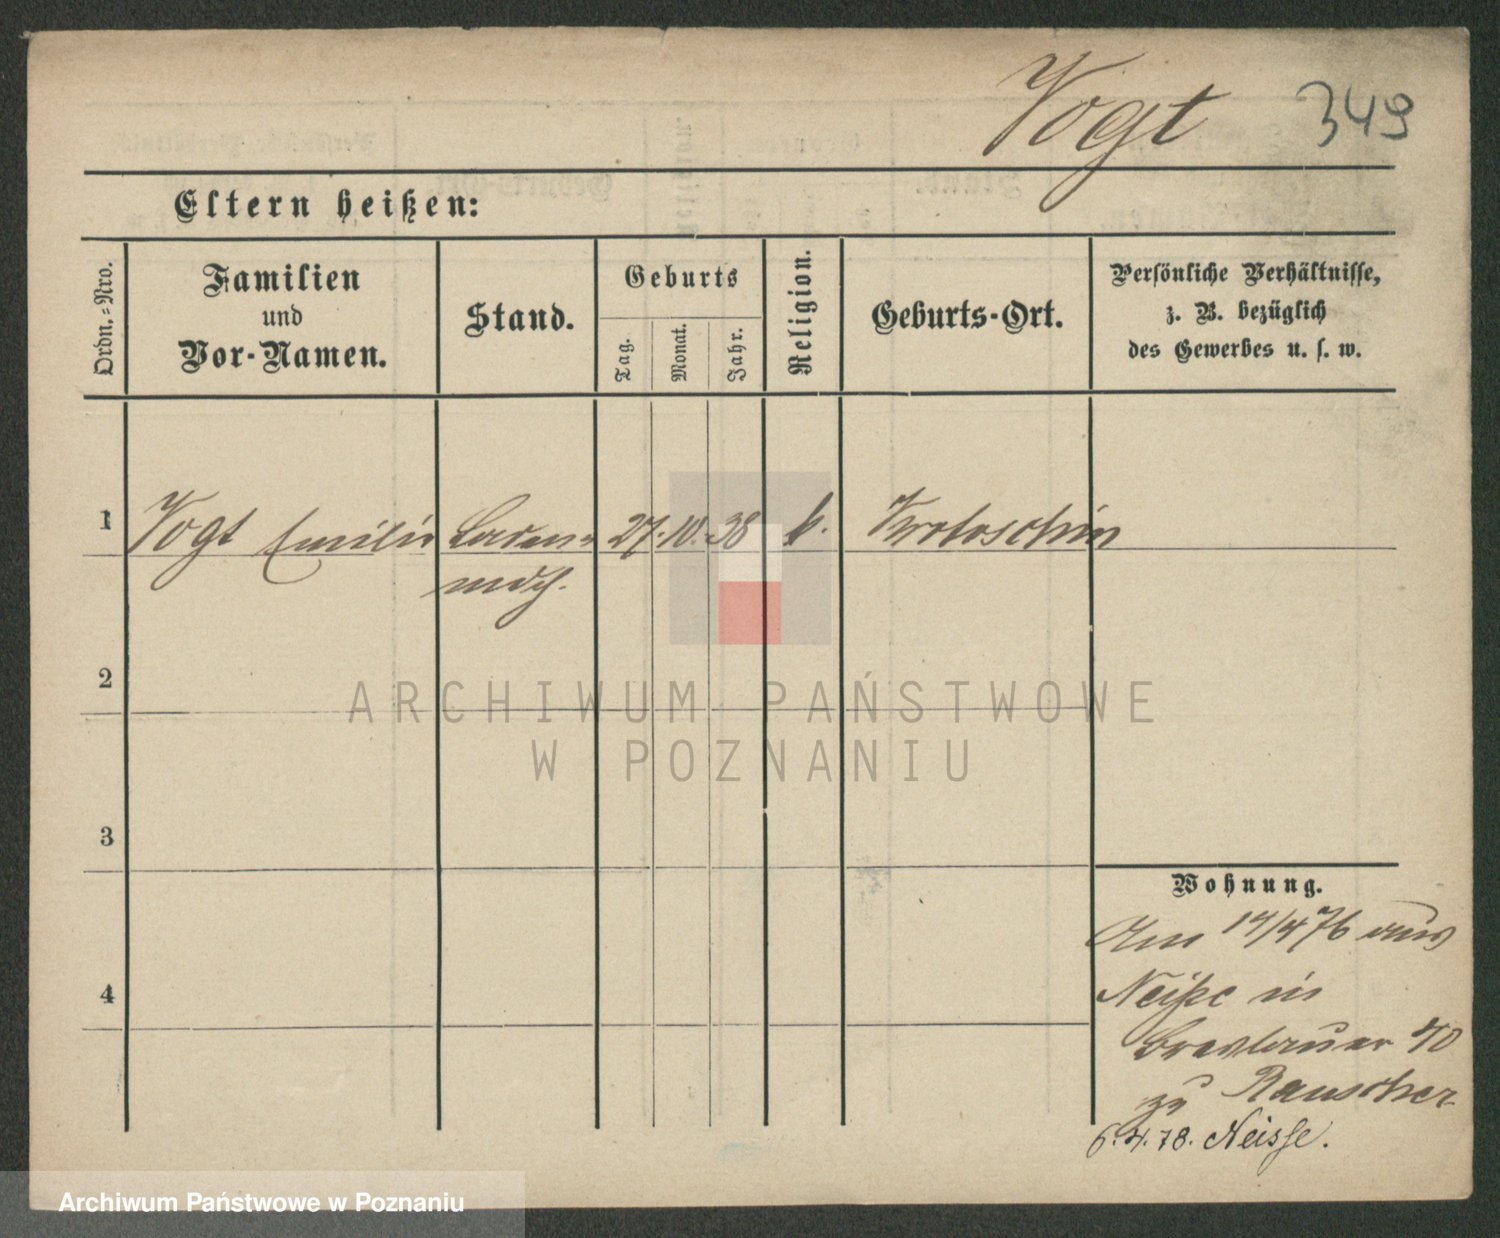 Vogt 349
Eltern heißen:
Ordn.-Nro.
Familien
und
Vor-Namen.
Stand.
Geburts
Tag.
Monat.
Jahr.
Religion.
Geburts-Ort.
Persönliche Verhältnisse,
z. B. bezüglich
des Gewerbes u. s. w.
1 Vogt Emilie Laden= 27. 10. 38 k. Krotoschin
mdch.
2
3
4
Wohnung.
Am 14/4 76 aus
Neiße in
Breslauer 40
zu Rauscher
6.4.78. Neisse.
ARCHIWUM PAŃSTWOWE
W POZNANIU
Archiwum Państwowe w Poznaniu